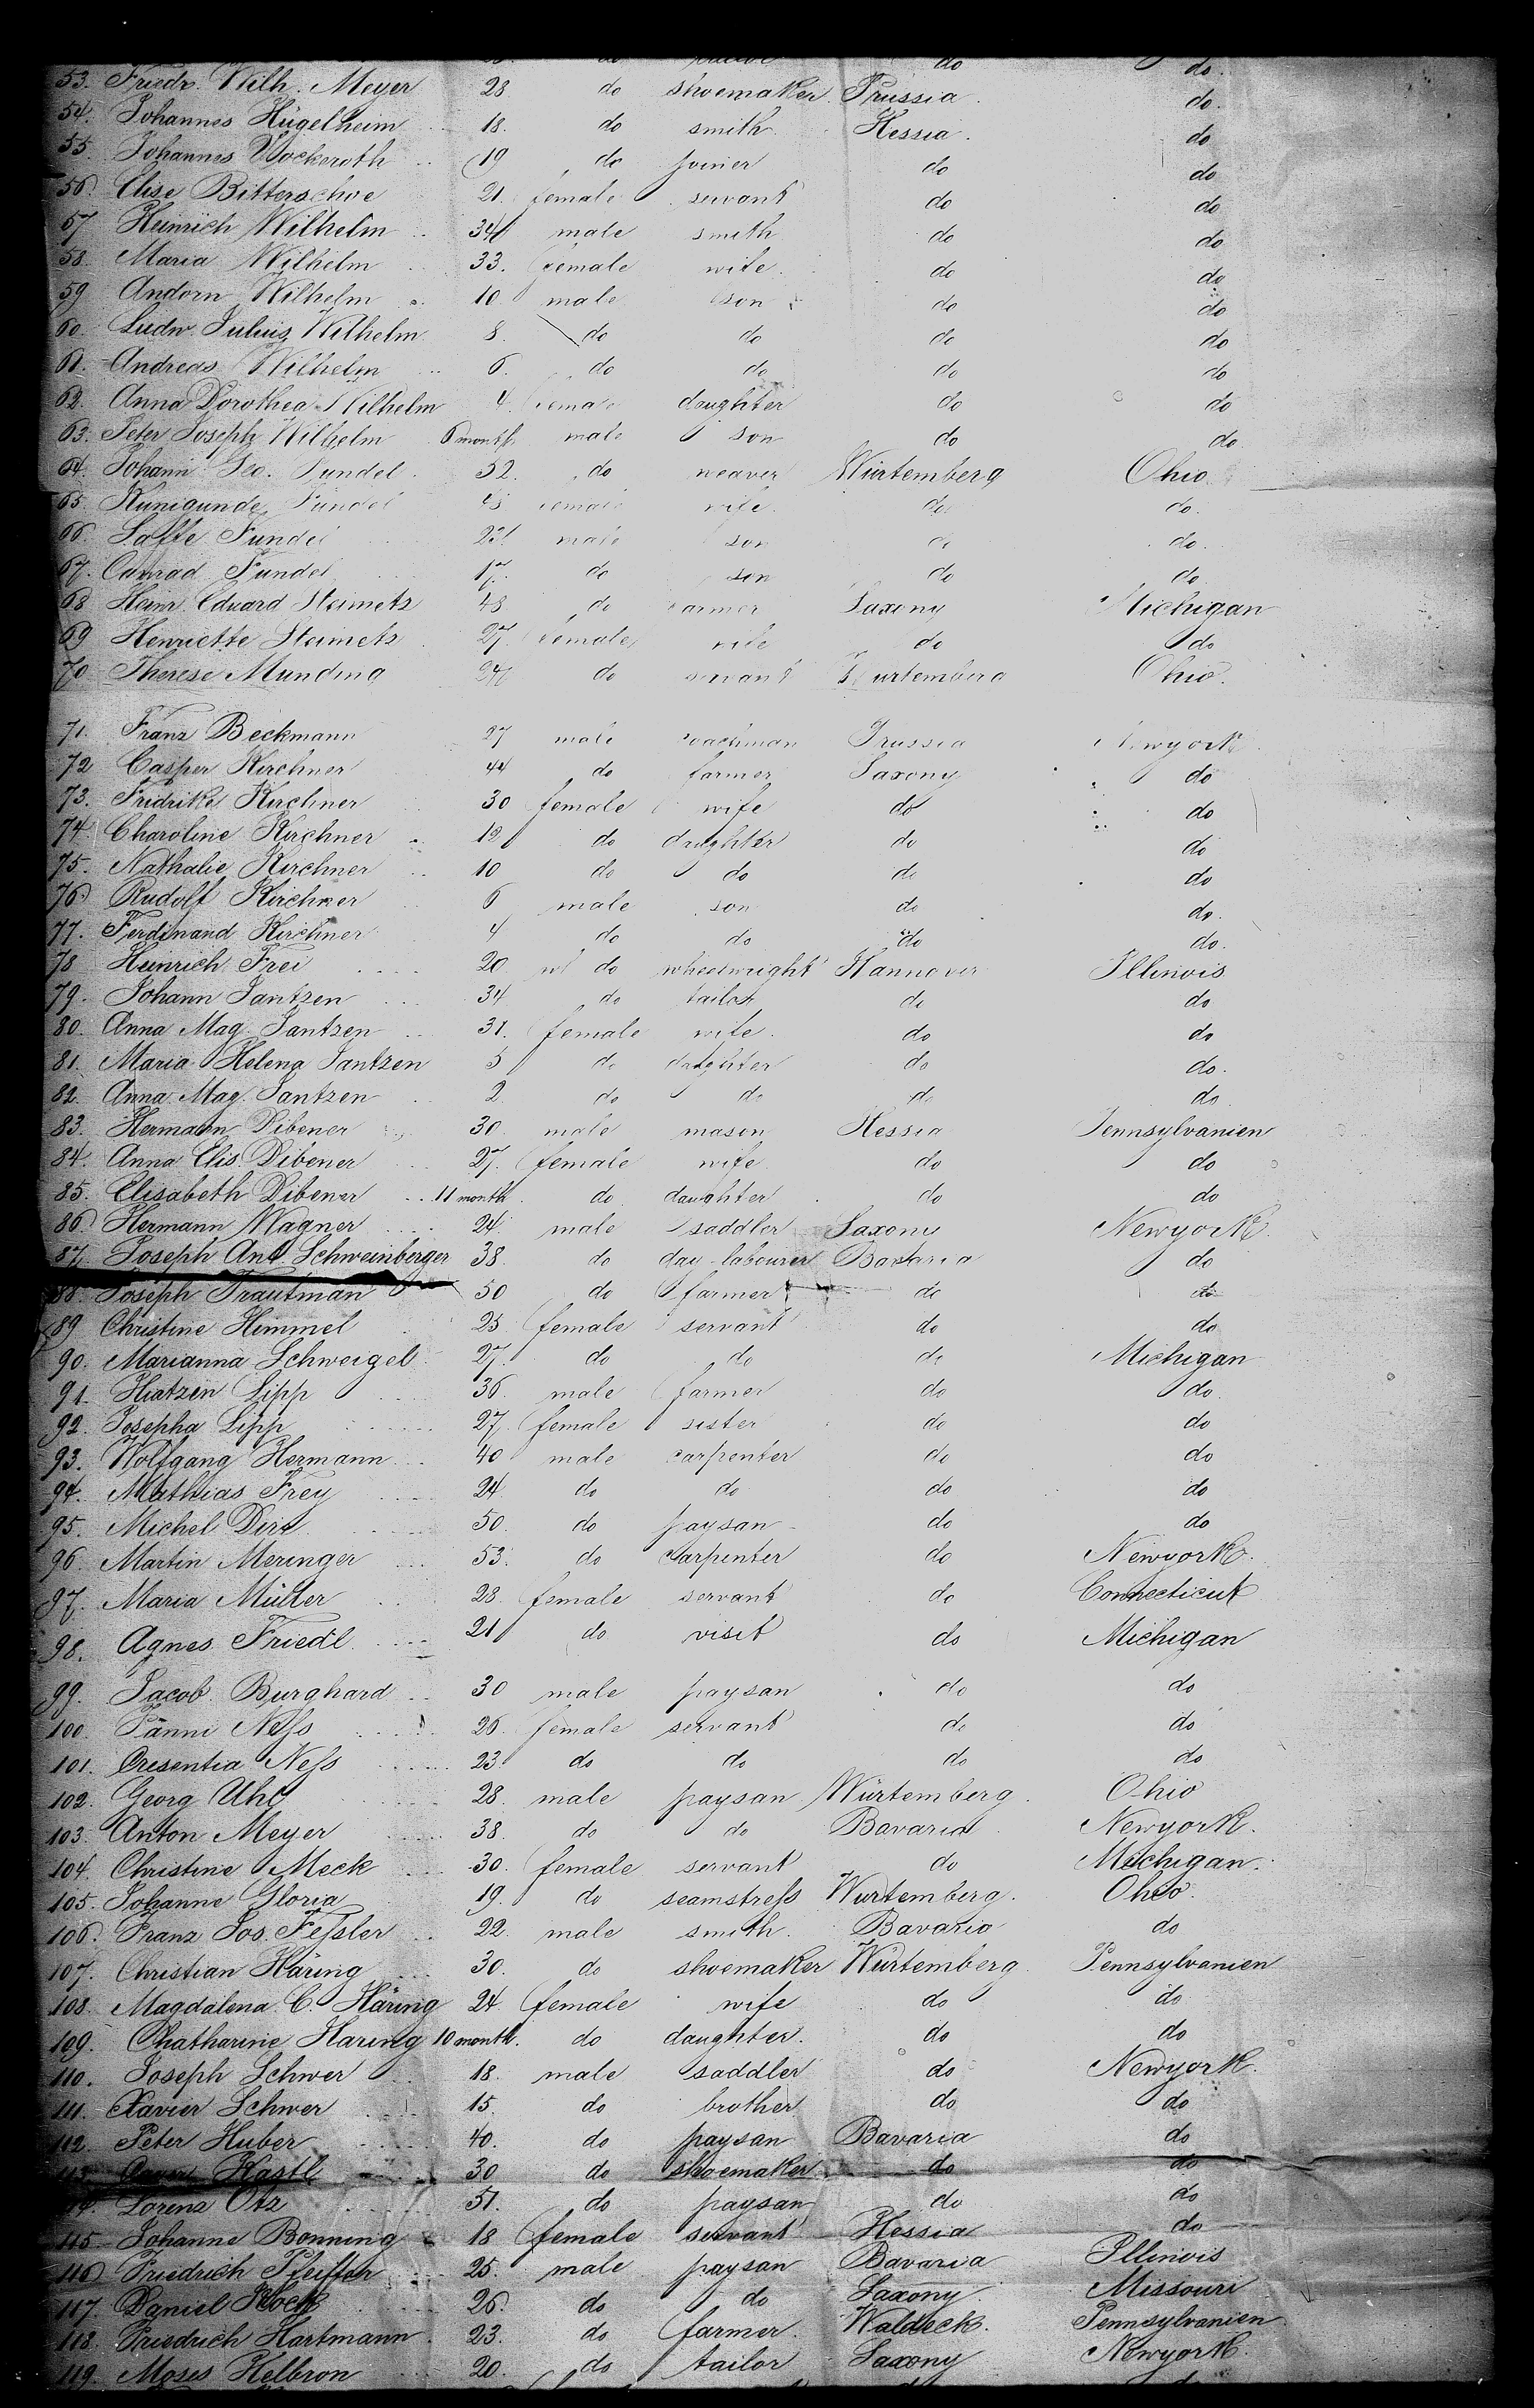 53. Friedr. Wilh. Meyer 28 do shoemaker Prussia. do.
54. Johannes Hügelheim 18. do smith Hessia. do
55. Johannes Wockeroth 19 do joiner do do
56. Elise Bitterschoe 21. female servant do do
57 Heinrich Wilhelm 34 male smith do do
58. Maria Wilhelm 33. female wife. do do
59 Andorn Wilhelm 10 male son do do
60. Ludw. Julius Wilhelm 8. do do do do
61. Andreas Wilhelm 6. do do do do
62. Anna Dorothea Wilhelm 4. female daughter do do
63. Peter Joseph Wilhelm 6 month male son do do.
64. Johann Geo. Fundel 52. do weaver Würtemberg Ohio.
65. Kunigunde Fundel 48 female wife. do do.
66. Fundel male son do do.
67. Conrad Fundel 17. do son do do.
68 Heinr. Eduard Steimetz 48 do farmer Saxony Michigan
69 Henriette Steimetz 27. female wife do do
70 Therese Munding 24 do servant Würtemberg Ohio.
71. Franz Beckmann 27 male coachman Prussia Newyork
72 Casper Kirchner 44 do farmer Saxony do
73. Fridrike Kirchner 30 female wife do do
74 Charoline Kirchner 12 do daughter do do
75. Nathalie Kirchner 10 do do do do
76. Rudolf Kirchner 6 male son do do.
77. Ferdinand Kirchner 4 do do do do.
78 Heinrich Frei 20 do wheelwright Hannover Illinois
79. Johann Jantzen 34 do tailor do do
80. Anna Mag. Jantzen 31. female wife. do do
81. Maria Helena Jantzen 5 do daughter do do.
82. Anna Mag. Jantzen 2 do do do do
83. Hermann Dibener 30. male mason Hessia Pennsylvanien
84. Anna Elis. Dibener 27. female wife do do
85. Elisabeth Dibener 11 month. do daughter do do
86. Hermann Wagner 24 male saddler Saxony Newyork.
87. Joseph Ant. Schweinberger 38. do day-labourer Bavaria do
88 Joseph Trautman 50 do farmer do do
89 Christine Himmel 25 female servant do do
90. Marianna Schweigel 27. do do do Michigan
91. Lipp 36. male farmer do do.
92. Josepha Lipp 27. female sister do do
93. Wolfgang Hermann 40 male carpenter do do
94. Mathias Frey 24 do do do do
95. Michel 50. do paysan do do
96. Martin Meringer 53. do carpenter do Newyork.
97. Maria Müller 28. female servant do Connecticut
98. Agnes Friedl 21 do visit do Michigan
99. Jacob Burghard 30 male paysan do do
100. Fänni Neſs 26. female servant do do
101. Cresentia Neſs 23. do do do do
102. Georg Uhl 28. male paysan Würtemberg. Ohio
103. Anton Meyer 38. do do Bavaria Newyork.
104. Christine Meck 30. female servant do Michigan.
105. Johanne Gloria 19. do seamstreſs Würtemberg. Ohio.
106. Franz Jos. Feſsler 22. male smith. Bavaria do
107. Christian Häring 30. do shoemaker Würtemberg. Pennsylvanien
108. Magdalena C. Häring 24. female wife do do
109. Chatharine Haring 10 month. do daughter. do do
110. Joseph Schwer 18. male saddler do Newyork.
111. Xavier Schwer 15. do brother do do
112. Peter Huber 40. do paysan Bavaria do
113. Hastl 30 do shoemaker do do
114. Lorenz Otz 51. do paysan do do
115 Johanne Bonning 18 female servant Hessia do
116 Friedrich Pfeiffer 25. male paysan Bavaria Illinois
117. Daniel Koch 26. do do Saxony. Missouri
118. Friedrich Hartmann 23. do farmer. Waldeck. Pennsylvanien
119. Moses Helbron 20. do tailor Saxony Newyork.